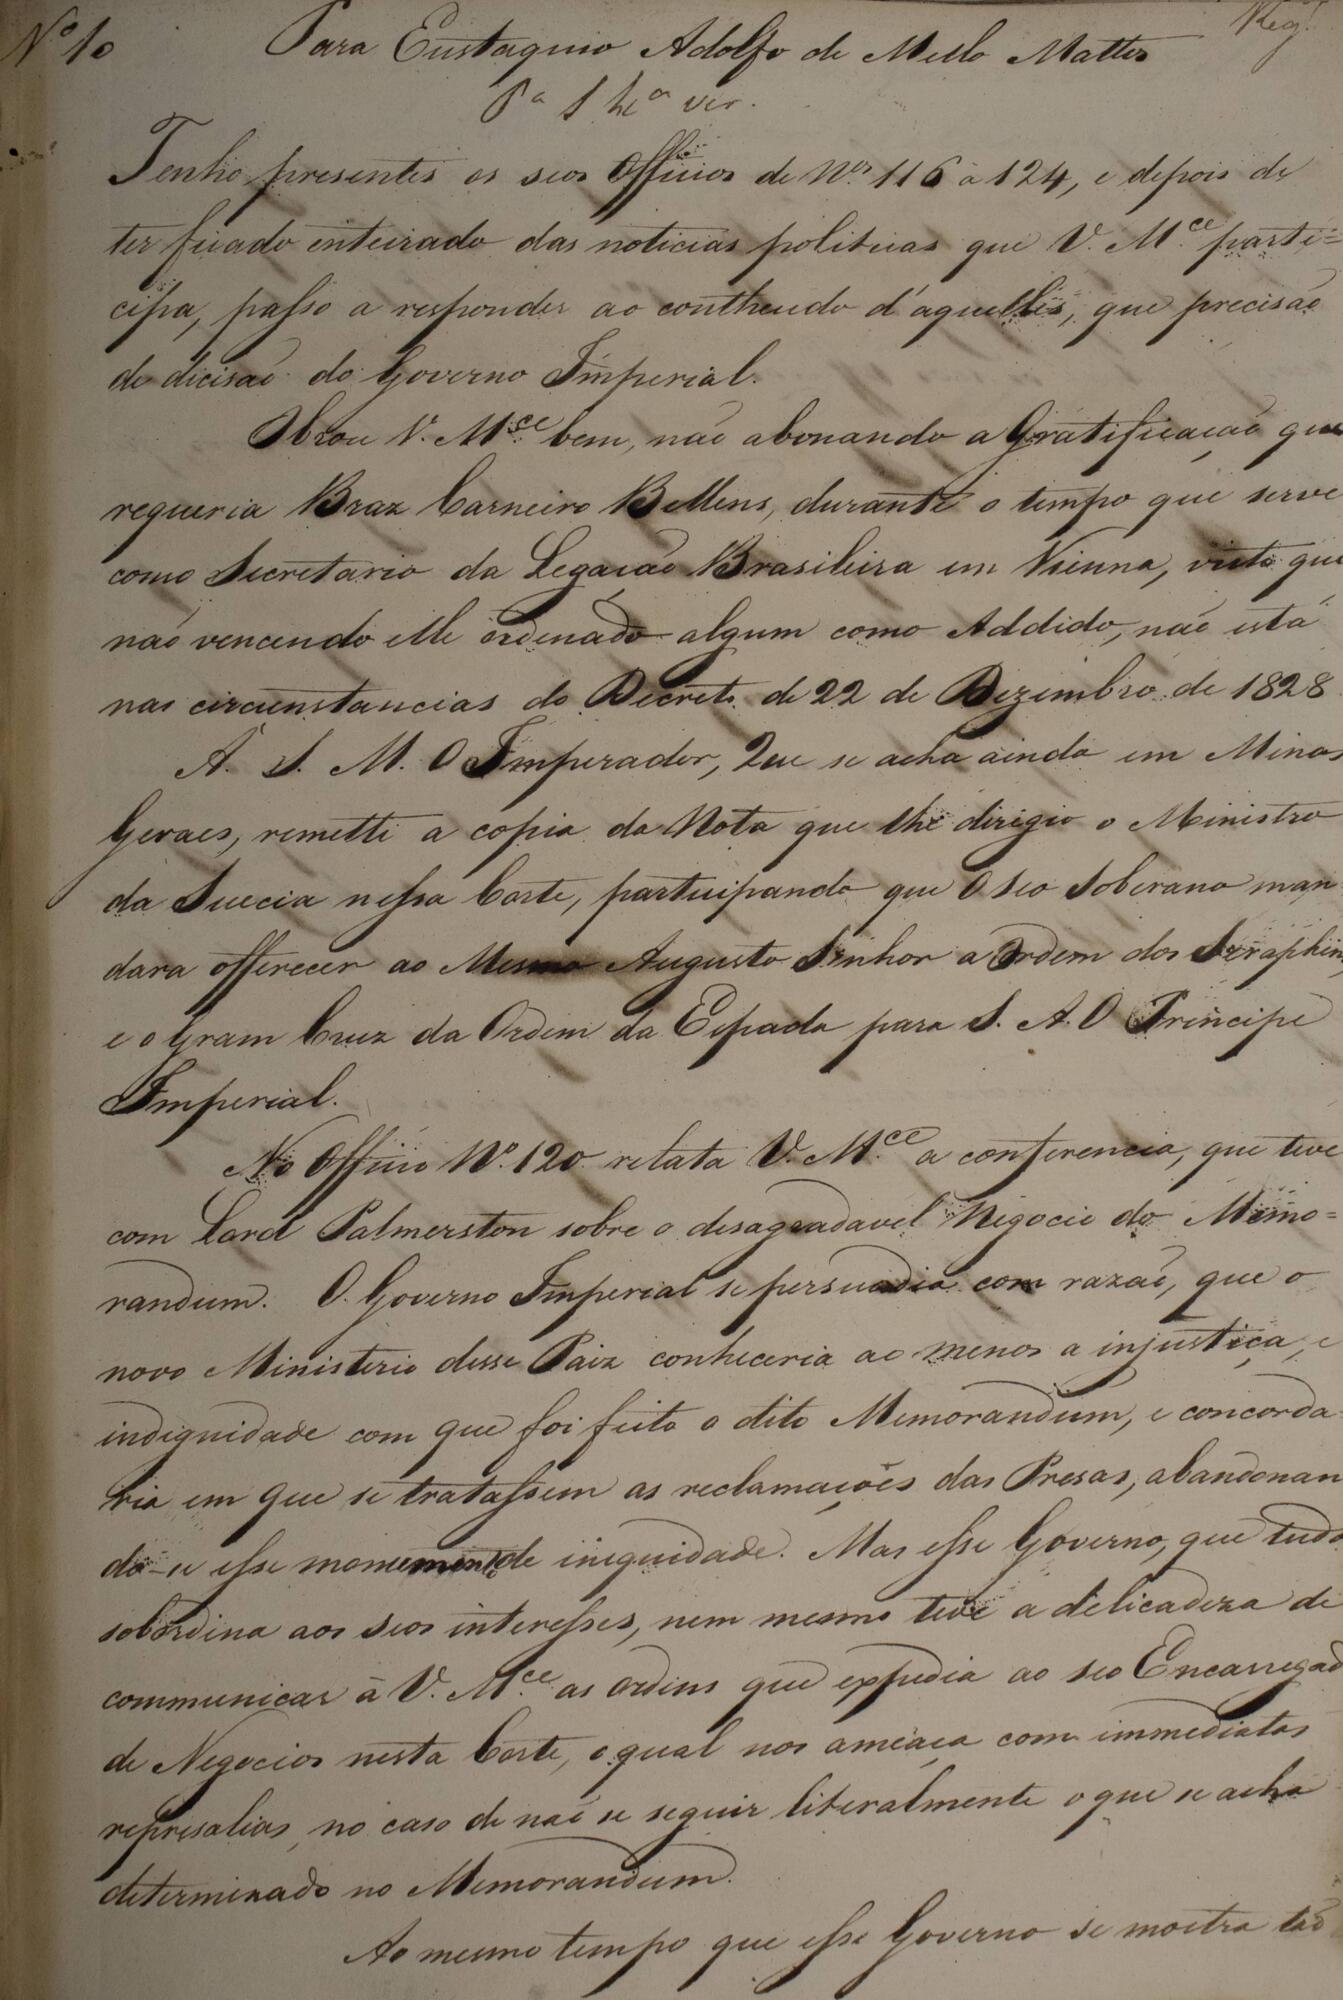 Nº 10 Para Eustaquio Adolfo de Mello Mattos Reg.
Tenho presentes os seos Officios de Nos. 116 a 124, e depois de
ter ficado inteirado das noticias politicas que V. Mce parti=
cipa, passo a responder ao contheudo d'aquelles, que precisão
de dicisão do Governo Imperial.
Obrou V. Mce bem, não abonando a Gratificação que
requeria Braz Carneiro Bellens, durante o tempo que serve
como Secretario da Legação Brasileira em Vienna, visto que
não vencendo elle ordenado algum como Addido, não está
nas circunstancias do Decreto de 22 de Dezembro de 1828
A S. M. O Imperador, Que se acha ainda em Minas
Geraes, remetti a copia da Nota que lhe dirigio o Ministro
da Suecia nessa Corte, participando que O seo Soberano man
dara offerecer ao Mesmo Augusto Senhor a Ordem dos Seraphins,
e o Gram Cruz da Ordem da Espada para S. A. O Principe
Imperial.
No Officio Nº. 120 relata V. Mce a conferencia, que teve
com Lord Palmerston sobre o desagradavel Negocio do Memo=
randum. O Governo Imperial se persuadia com razão, que o
novo Ministerio desse Paiz conheceria ao menos a injustiça, e
indignidade com que foi feito o dito Memorandum, e concorda
ria em que se tratassem as reclamações das Presas, abandonan
do-se esse de iniquidade. Mas esse Governo, que tudo
sobordina aos seos interesses, nem mesmo teve a delicadeza de
communicar á V. Mce as ordins que expedia ao seo Encarregad
de Negocios nesta Corte, o qual nos ameaça com immediatas
represalias, no caso de não se seguir literalmente o que se acha
determinado no Memorandum.
Ao mesmo tempo que esse Governo se mostra tão